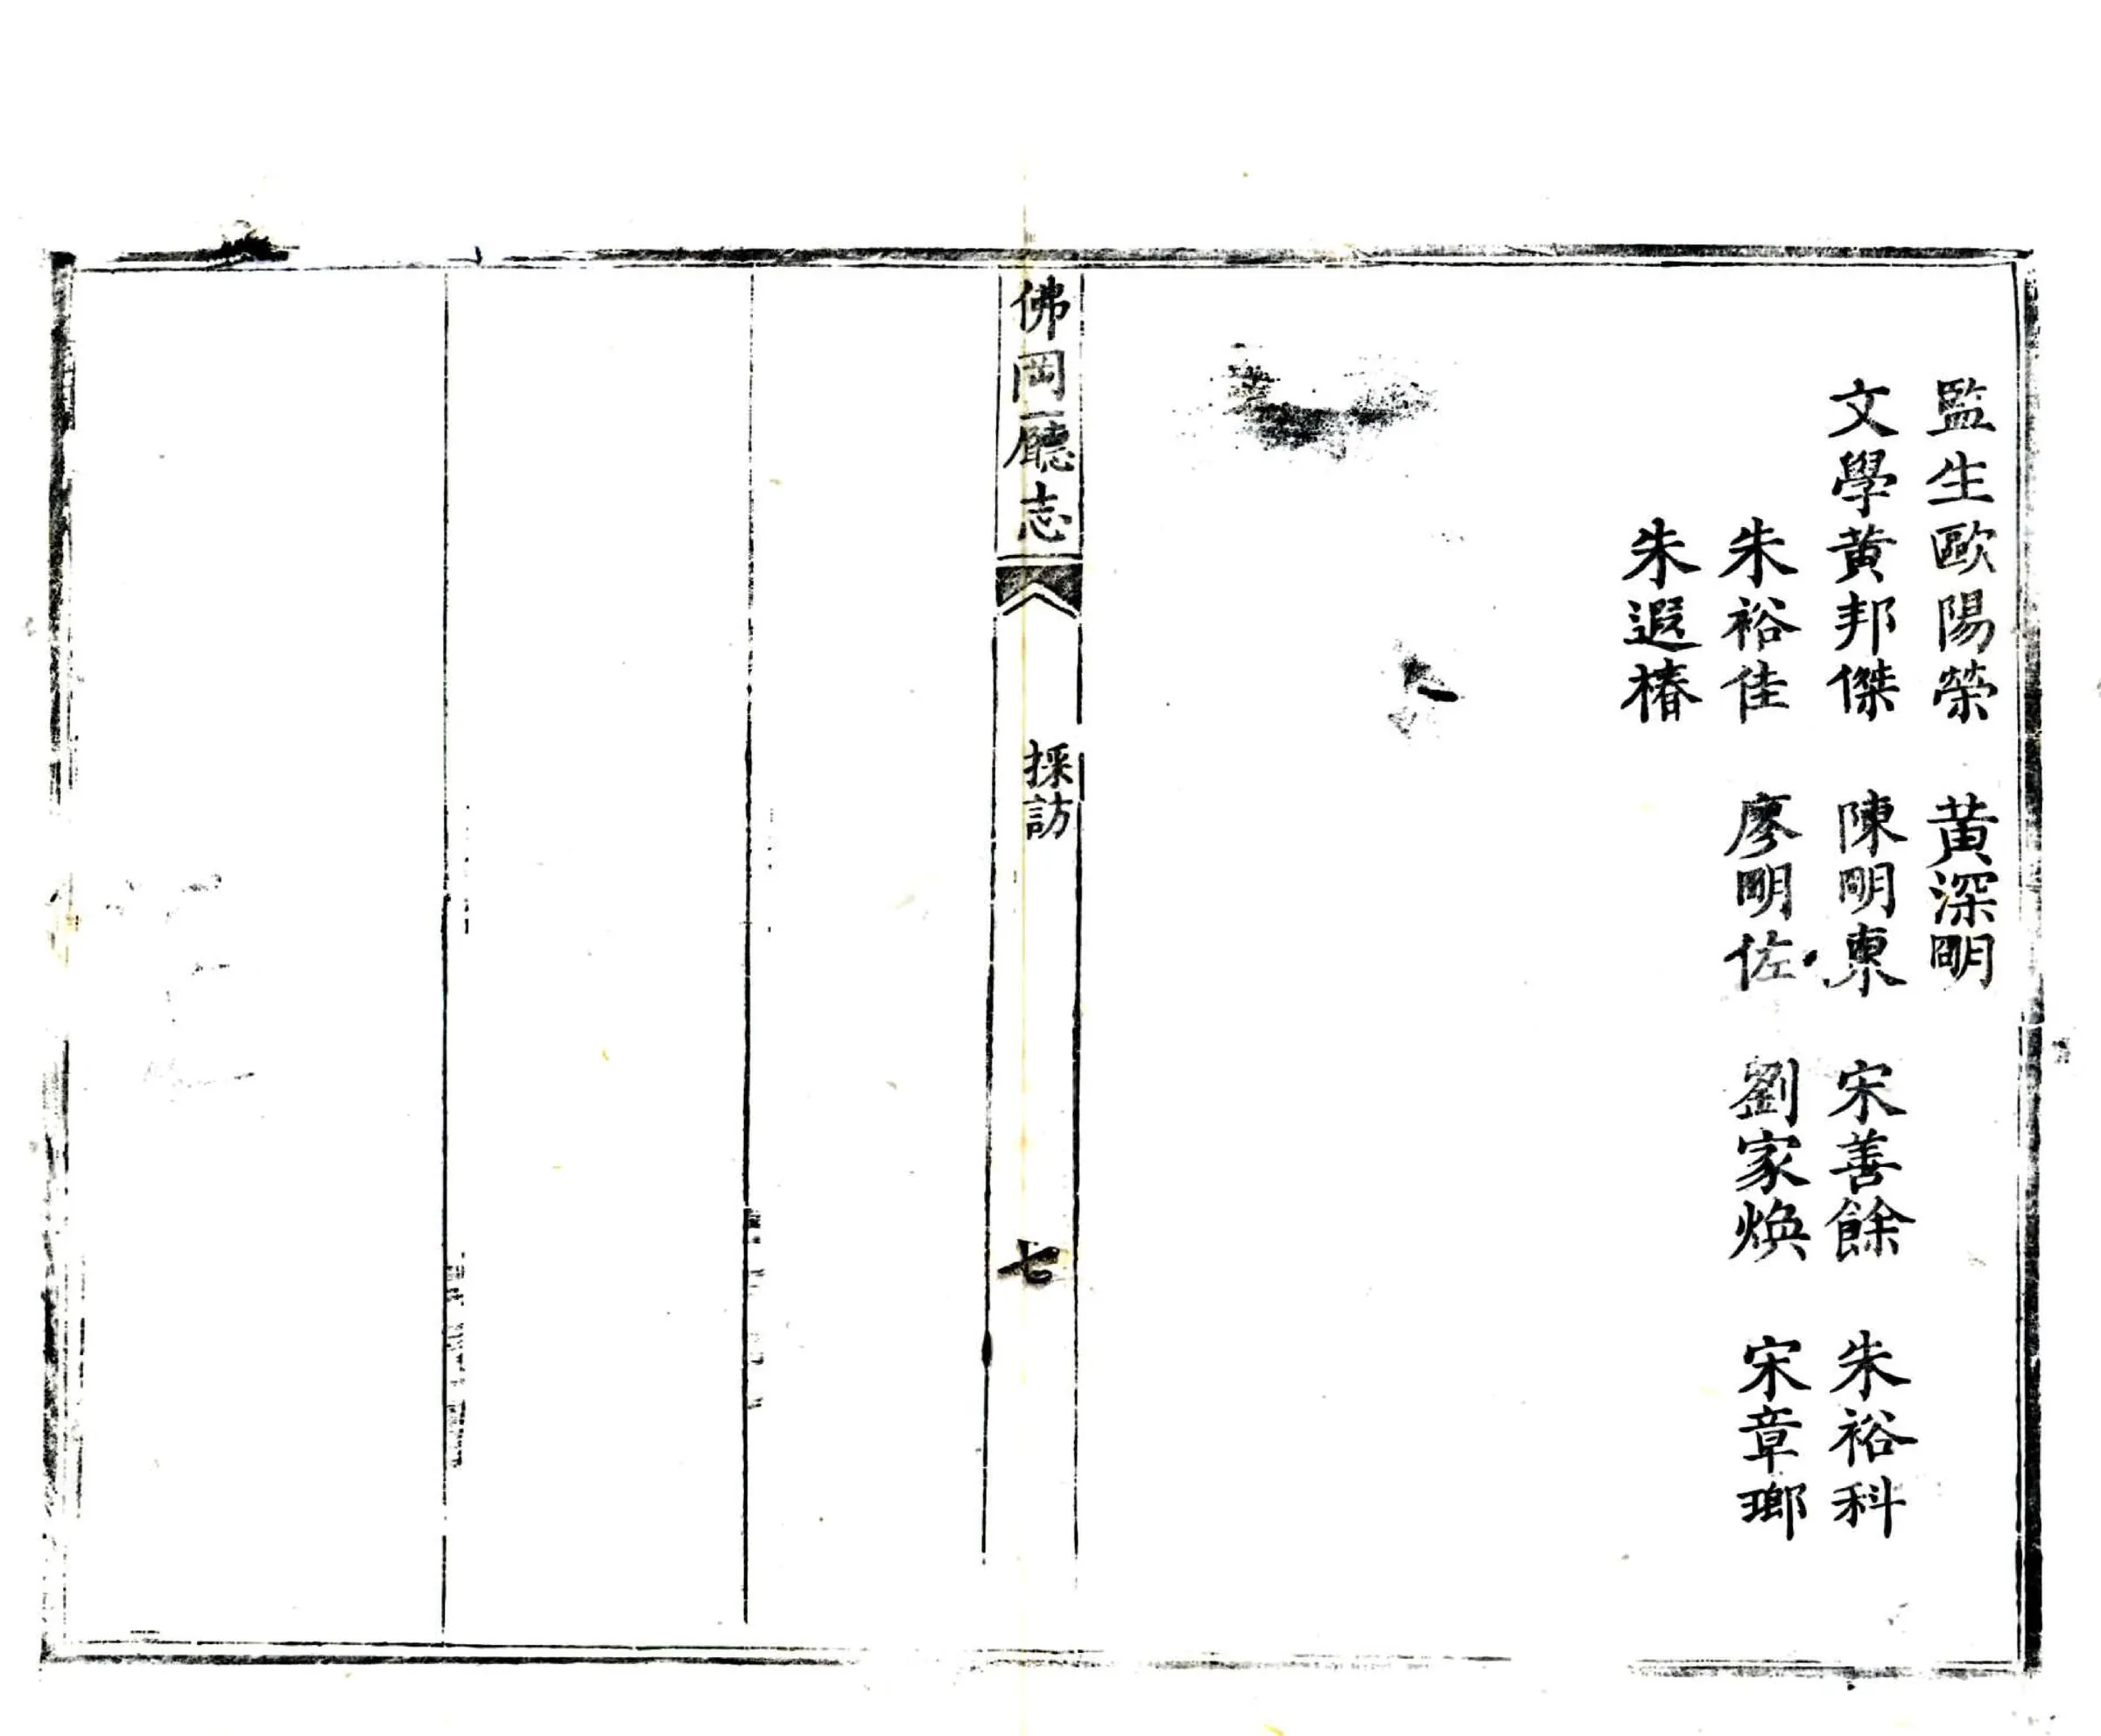 監生歐陽榮　黃深明
文學黃邦傑　陳明東　宋善餘　朱裕科
朱裕佳　廖明佐　劉家煥　宋章瑯
朱遐椿
佛岡廳志　採訪　七